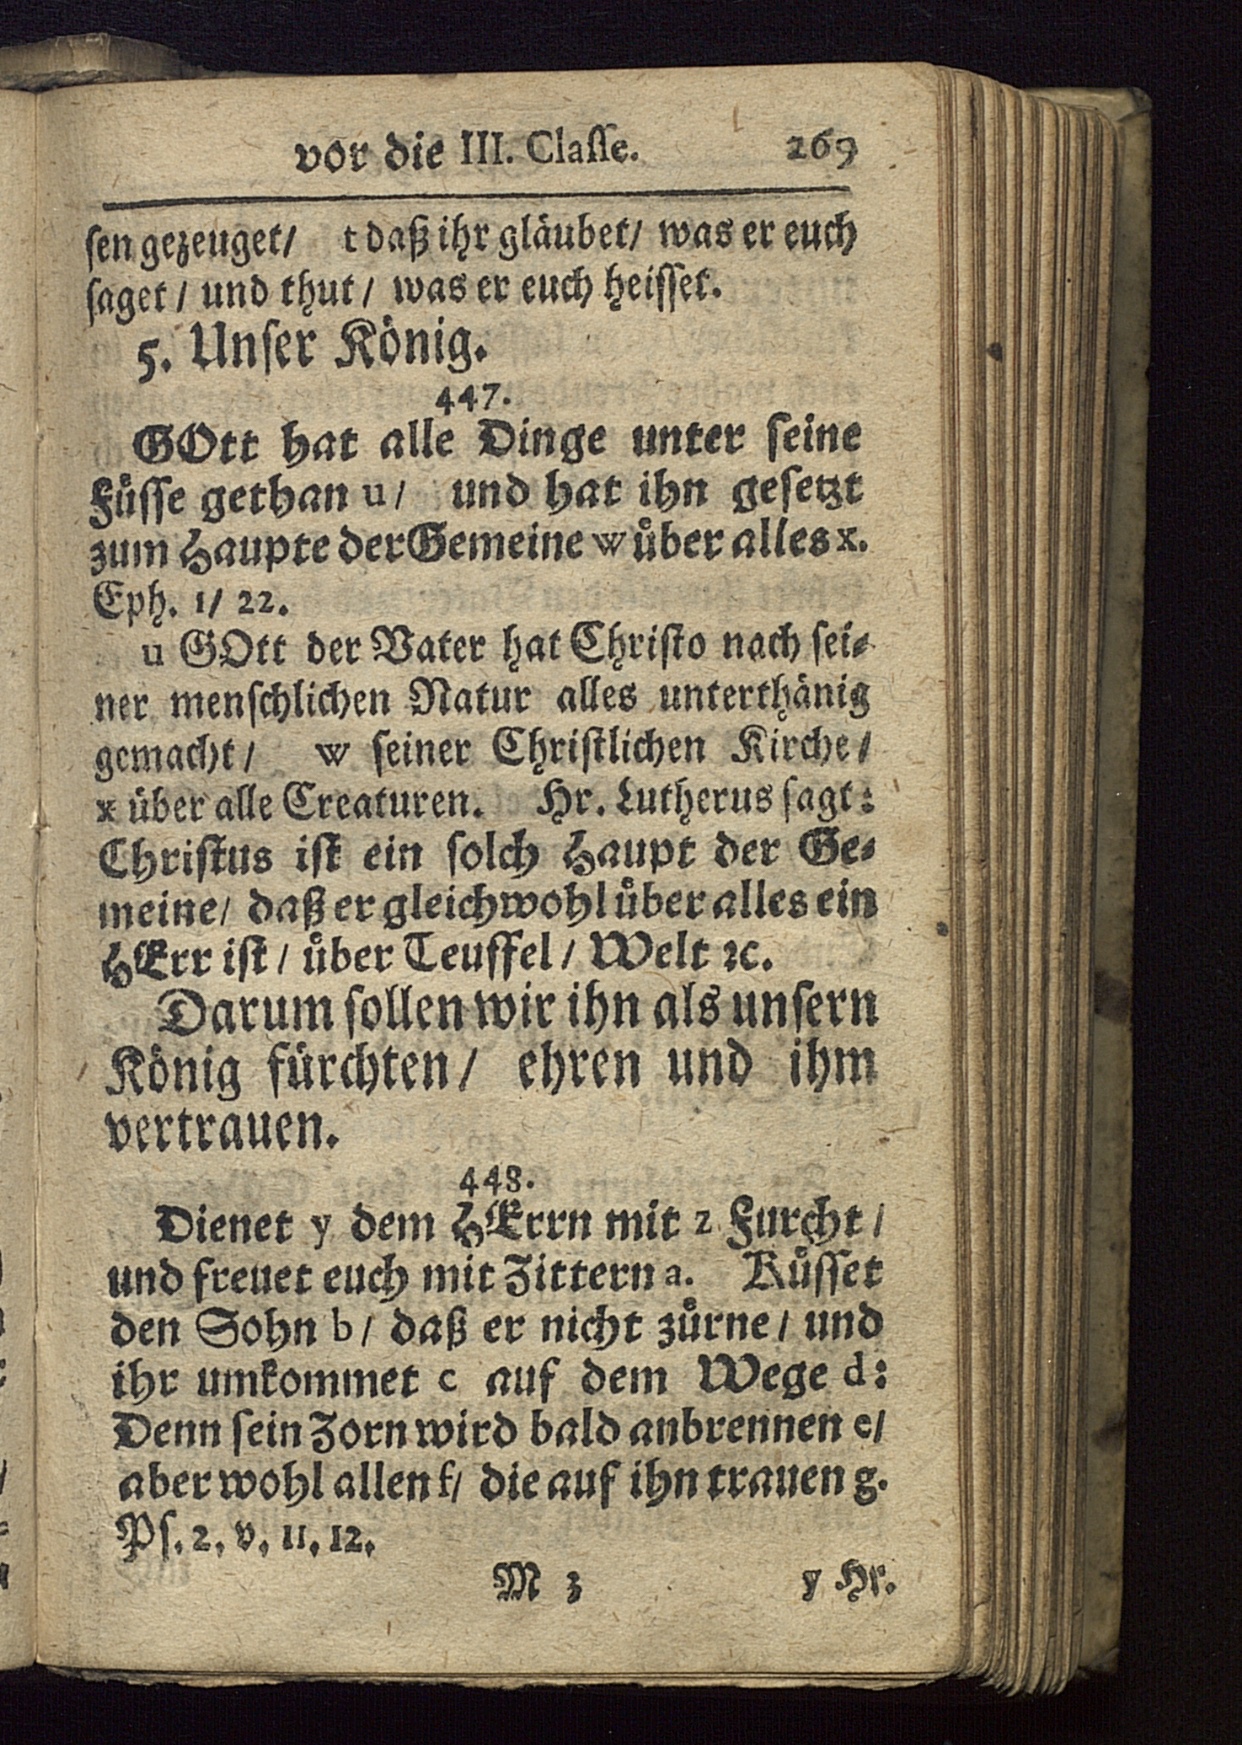 vor die III. Classe. 269
sen gezeuget/ t daß ihr gläubet/ was er euch
saget / und thut / was er euch heisset.
5. Unser König.
447.
GOtt hat alle Dinge unter seine
Füsse gethan u / und hat ihn gesetzt
zum Haupte der Gemeine w über alles x.
Eph. 1/ 22.
u GOtt der Vater hat Christo nach sei-
ner menschlichen Natur alles unterthänig
gemacht / w seiner Christlichen Kirche /
x über alle Creaturen. Hr. Lutherus sagt:
Christus ist ein solch Haupt der Ge-
meine / daß er gleichwohl über alles ein
HErr ist / über Teuffel / Welt ꝛc.
Darum sollen wir ihn als unsern
König fürchten / ehren und ihm
vertrauen.
448.
Dienet y dem HErrn mit z Furcht /
und freuet euch mit Zittern a. Küsset
den Sohn b / daß er nicht zürne / und
ihr umkommet c auf dem Wege d:
Denn sein Zorn wird bald anbrennen e/
aber wohl allen f/ die auf ihn trauen g.
Ps. 2. v. 11. 12.
M 3 y Hr.